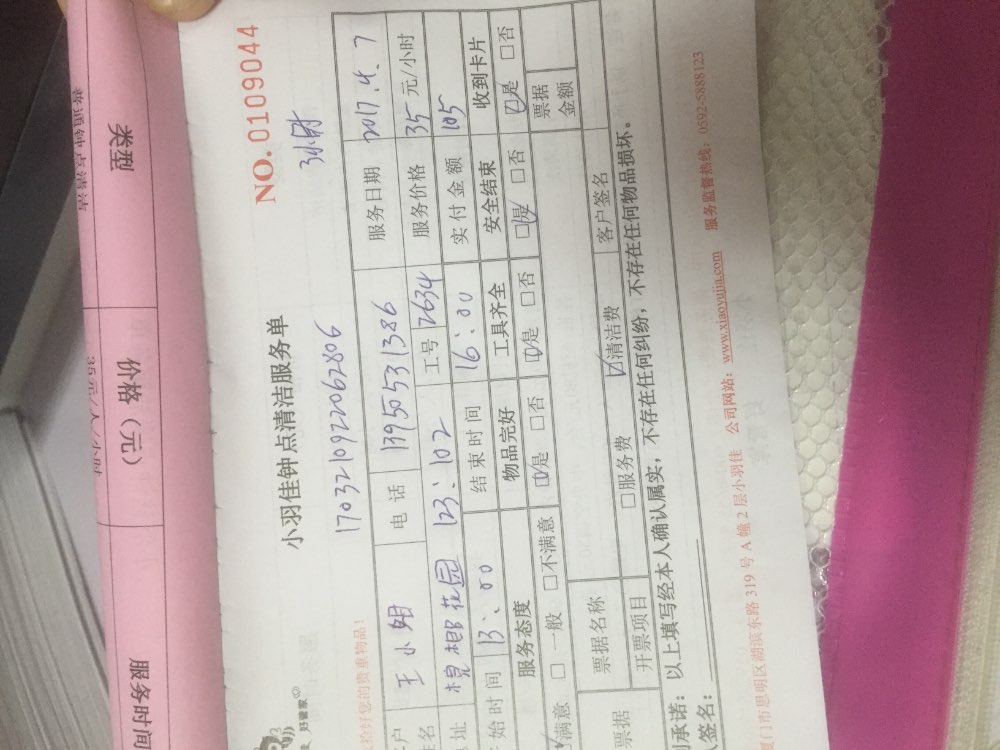 类型
价格（元）
服务时间
普通钟点清洁
35元/人/小时
好管家
小羽佳钟点清洁服务单
NO. 0109044
1703210922062806
3小时
收拾好您的贵重物品！
客户姓名 王小姐 电话 13950531386 服务日期 2017.4.7
地址 槟榔花园 123:102 工号 2634 服务价格 35元/小时
开始时间 13:00 结束时间 16:00 实付金额 105
服务态度 物品完好 工具齐全 安全结束 收到卡片
☑满意 □一般 □不满意 ☑是 □否 ☑是 □否 ☑是 □否 ☑是 □否
票据 票据名称 □服务费 ☑清洁费 客户签名 票据金额
开票项目
承诺：以上填写经本人确认属实，不存在任何纠纷，不存在任何物品损坏。
人签名：
厦门市思明区湖滨东路319号A幢2层小羽佳 公司网站：www.xiaoyujia.com 服务监督热线：0592-5888123